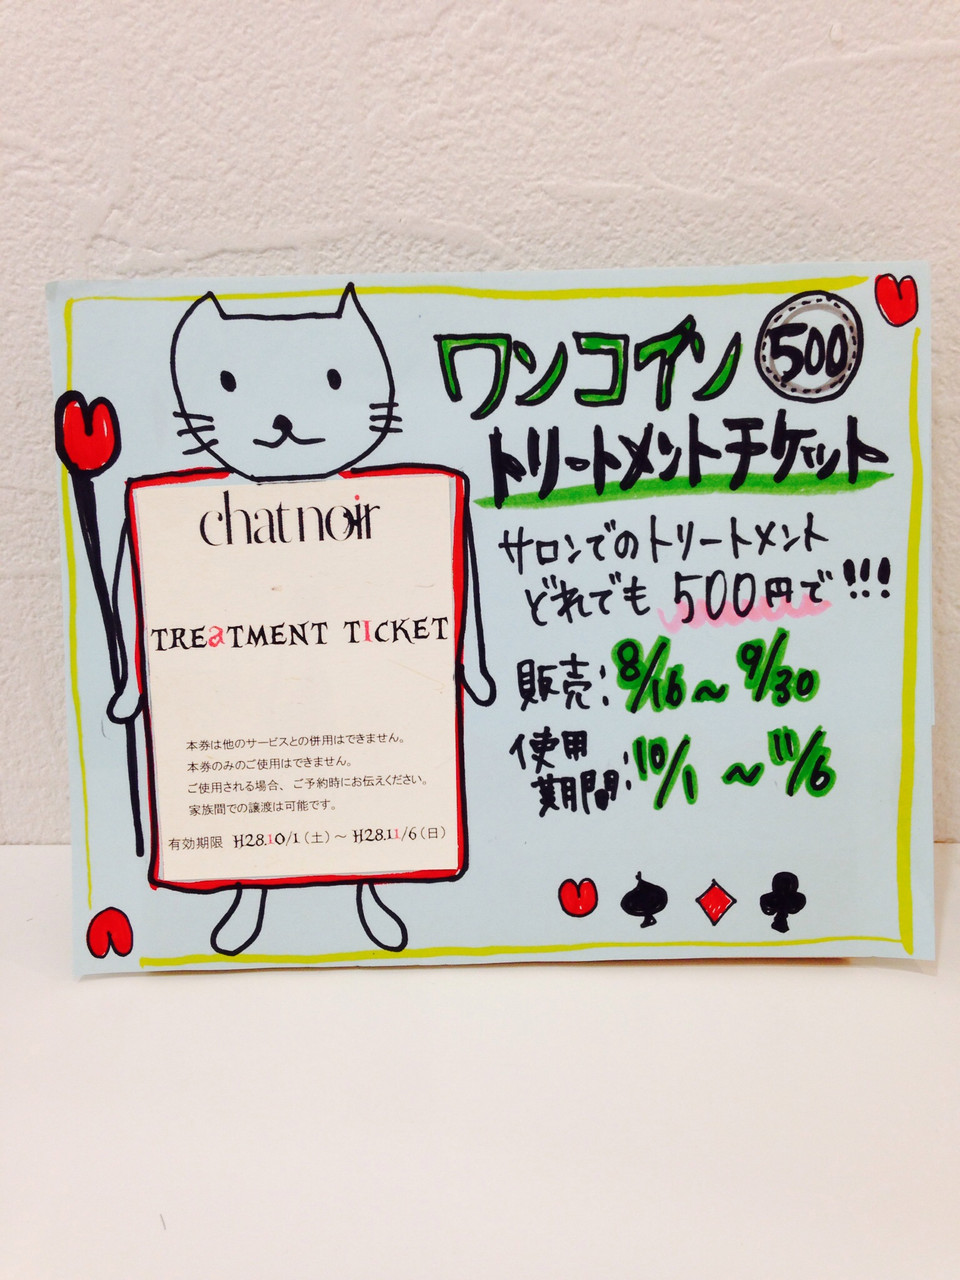 chat noir
TREaTMENT TICKET
本券は他のサービスとの併用はできません。
本券のみのご使用はできません。
ご使用される場合、ご予約時にお伝えください。
家族間での譲渡は可能です。
有効期限 H28.10/1(土)～H28.11/6(日)
ワンコイン 500
トリートメントチケット
サロンでのトリートメント
どれでも 500円で!!!
販売: 8/16～9/30
使用
期間: 10/1 ～ 11/6